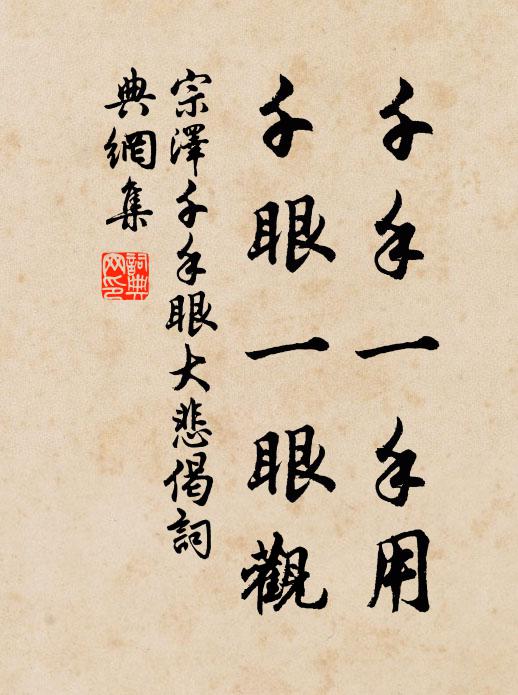 千手一手用
千眼一眼觀
宗澤千手眼大悲偈詞
典網集
詞典
网印